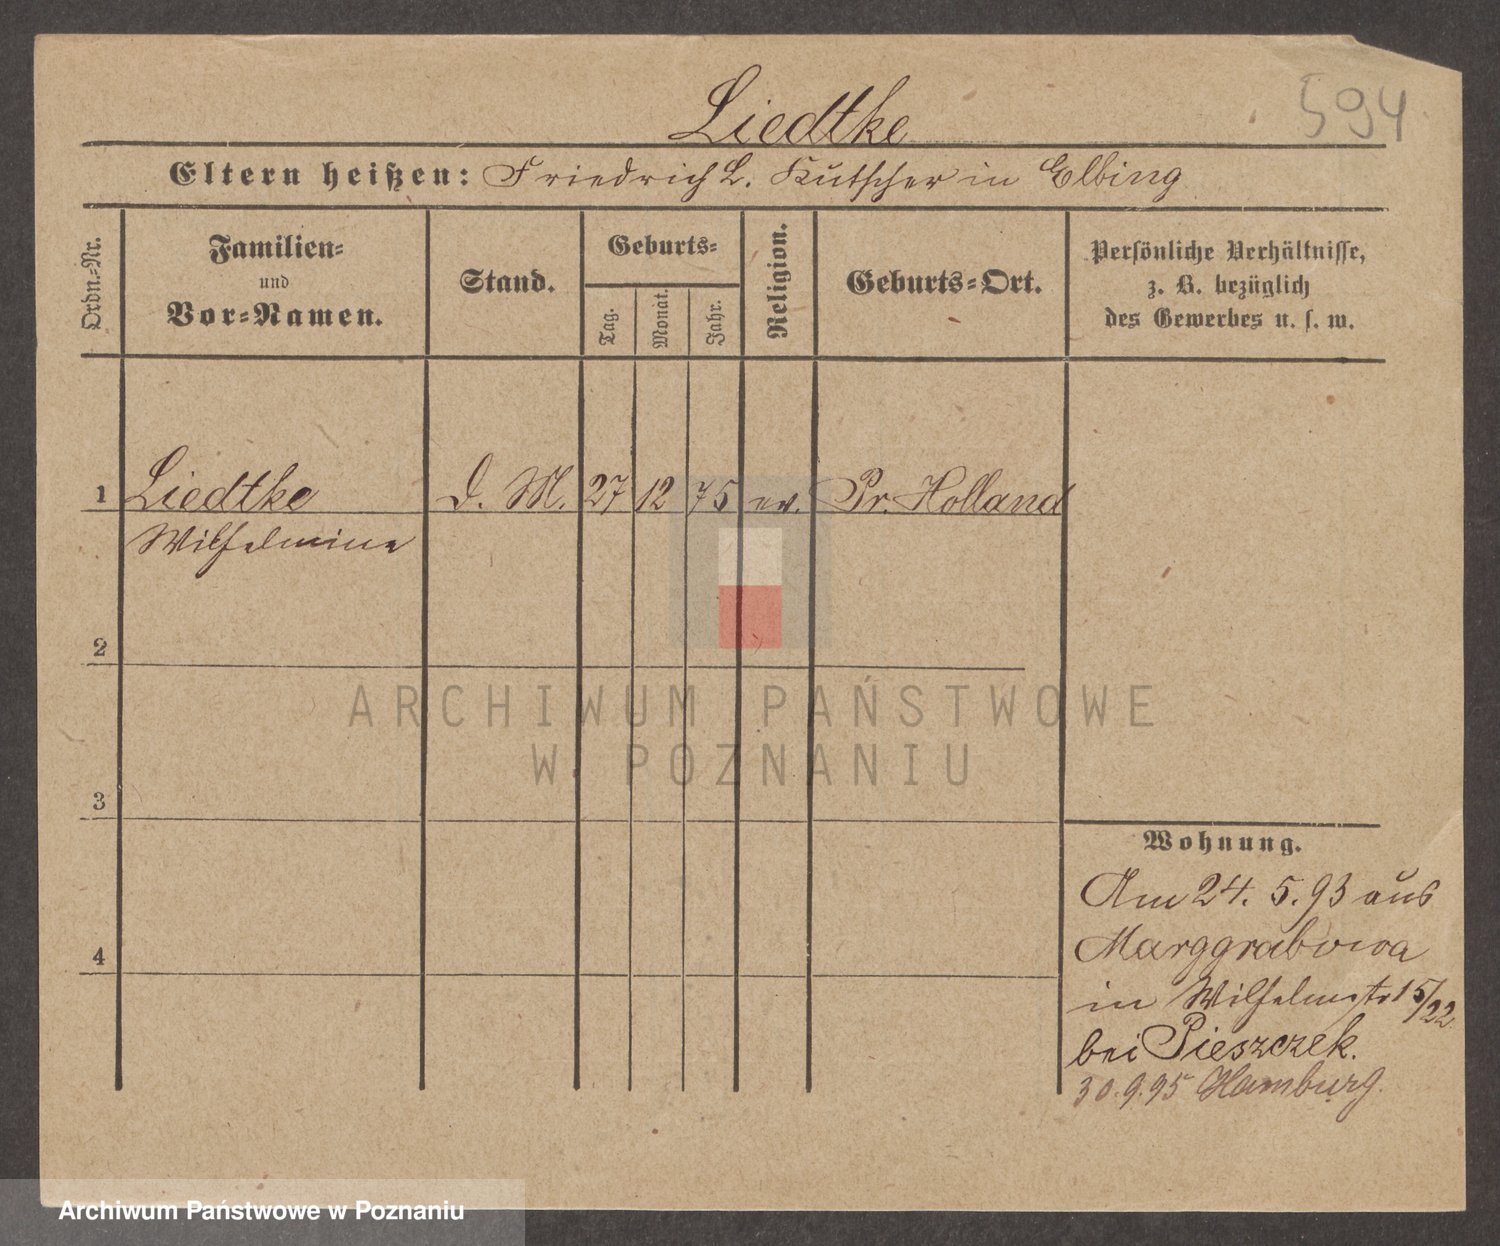 Liedtke
594
Eltern heißen: Friedrich L. Kutscher in Elbing
Ordn.-Nr.
Familien-
und
Vor-Namen.
Stand.
Geburts-
Tag.
Monat.
Jahr.
Religion.
Geburts-Ort.
Persönliche Verhältnisse,
z. B. bezüglich
des Gewerbes u. s. w.
1 Liedtke D. M. 27 12 75 ev. Pr. Holland
Wilhelmine
2
3
4
Wohnung.
Am 24. 5. 93 aus
Marggrabowa
in Wilhelmstr 15/22.
bei Pieszczek.
30.9.95 Hamburg.
ARCHIWUM PAŃSTWOWE
W POZNANIU
Archiwum Państwowe w Poznaniu